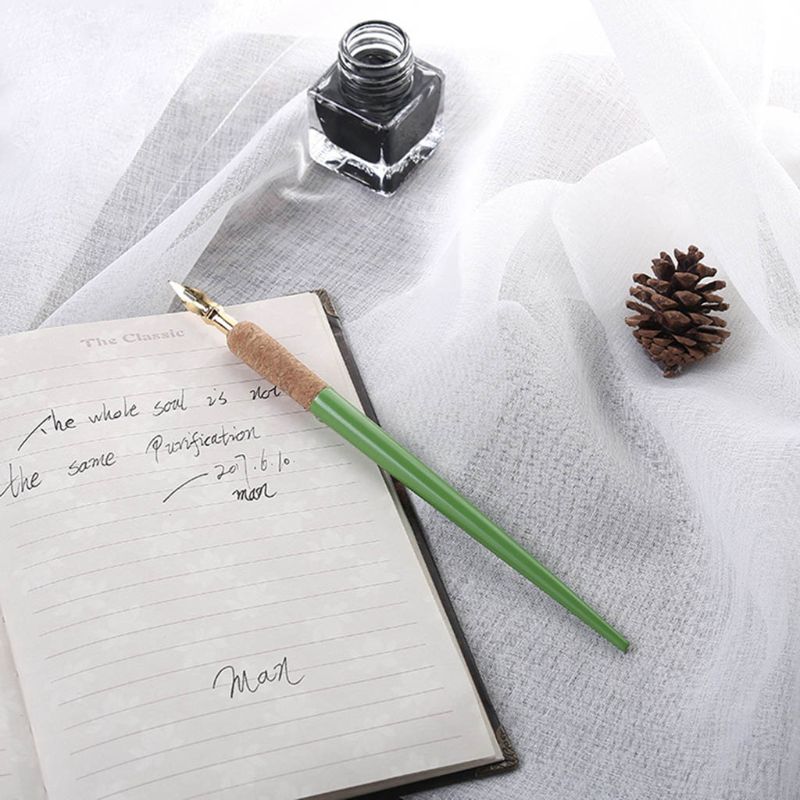 The Classic
The whole soul is not
the same Purification
2017.6.10.
man
Man